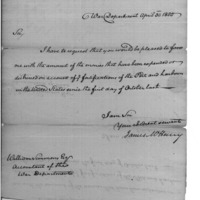 War Department April 30 1800
Sir,
I have to request that you would be pleased to furnish
me with the amount of the monies that have been expended or
advanced on account of Fortifications of the Ports and harbours
in the United States since the first day of October last
I am Sir
Your obedient servant
James McHenry
William Simmons Esqr
Accountant of the
War Department